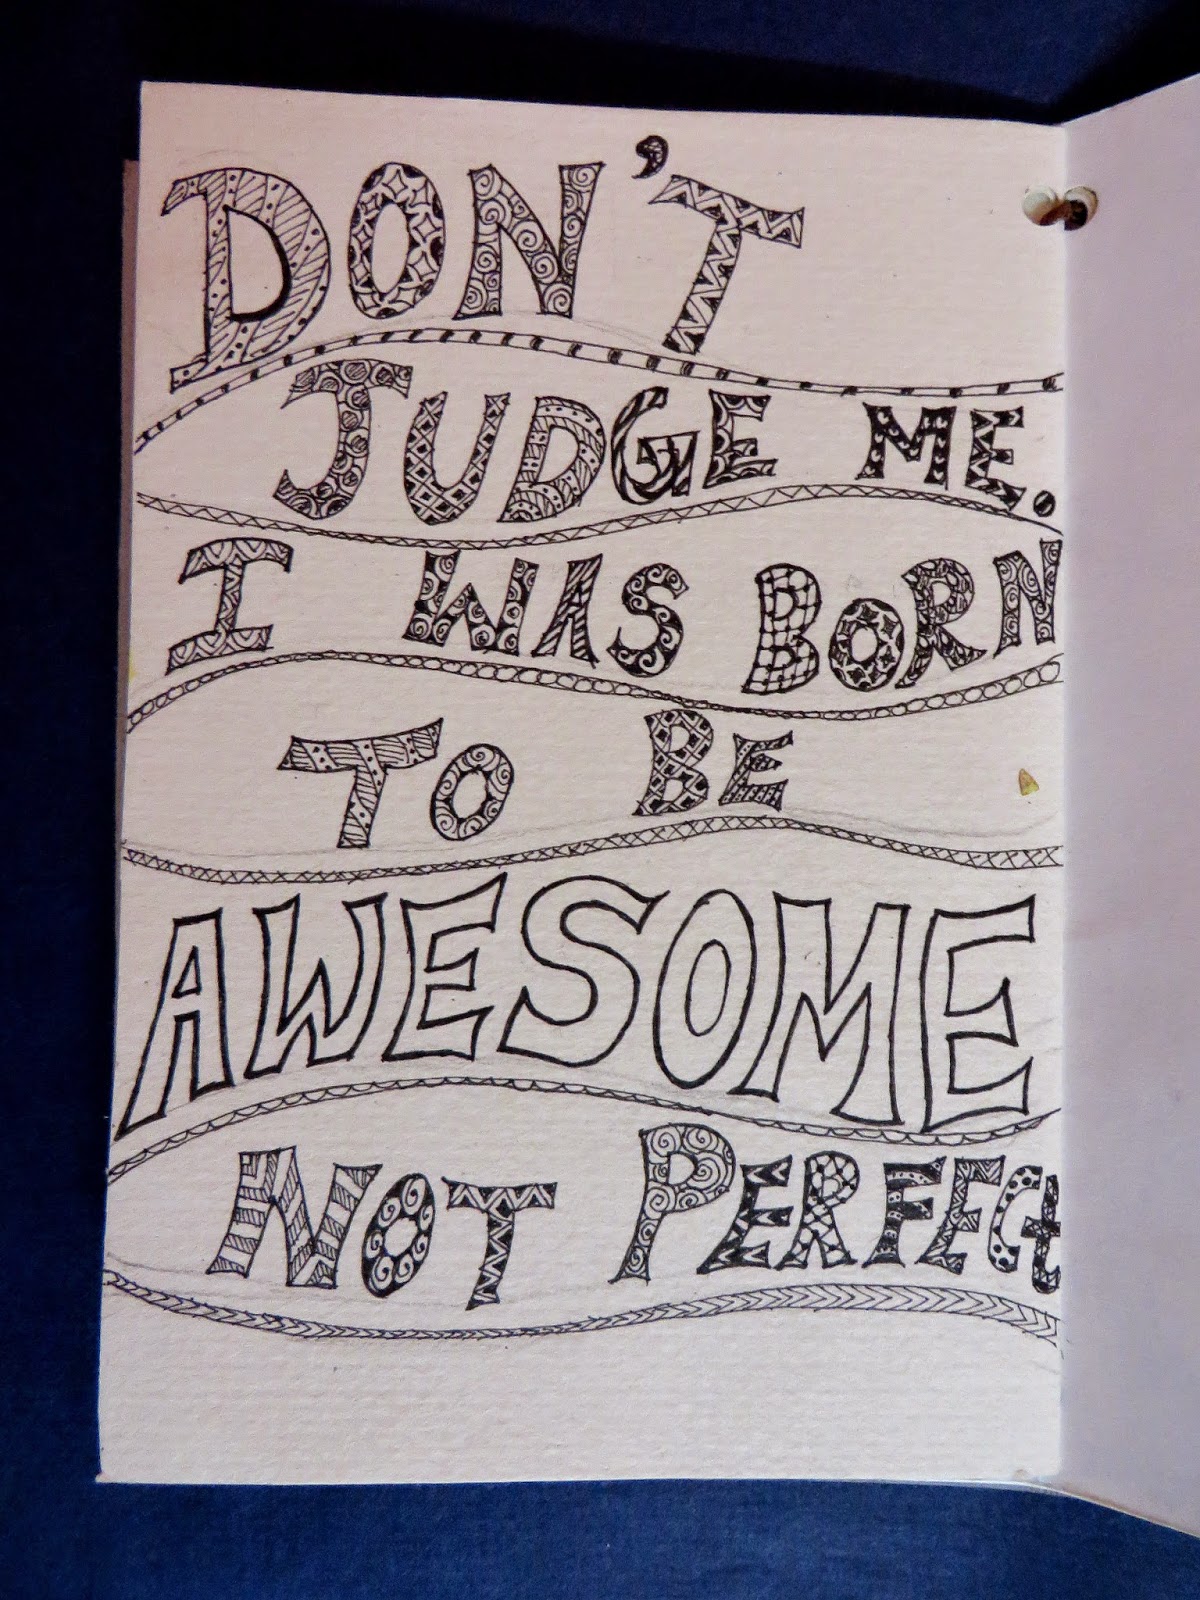 DON'T
JUDGE ME.
I WAS BORN
TO BE
AWESOME
NOT PERFECt